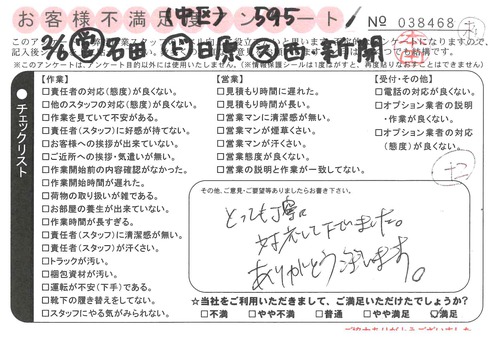 お客様不満足度アンケート
(中区) 595
No 038468
2/6 営 名田 ド 日原 ス 西 新開
※このアンケートは、アンケート目的以外には使用いたしません。(※情報保護シールは1度はがすと、再度貼りなおすことはできません)
チェックリスト
【作業】
□責任者の対応(態度)が良くない。
□他のスタッフの対応(態度)が良くない。
□作業を見ていて不安がある。
□責任者(スタッフ)に好感が持てない。
□お客様への挨拶が出来ていない。
□ご近所への挨拶・気遣いが無い。
□作業開始前の内容確認がなかった。
□作業開始時間が遅れた。
□荷物の取り扱いが雑である。
□お部屋の養生が出来ていない。
□作業時間が長すぎる。
□責任者(スタッフ)に清潔感が無い。
□責任者(スタッフ)が汗くさい。
□トラックが汚い。
□梱包資材が汚い。
□運転が不安(下手)である。
□靴下の履き替えをしてない。
□スタッフにやる気がみられない。
【営業】
□見積もり時間に遅れた。
□見積もり時間が長い。
□営業マンに清潔感が無い。
□営業マンが煙草くさい。
□営業マンが汗くさい。
□営業態度が良くない。
□営業の説明と作業が一致してない。
【受付・その他】
□電話の対応が良くない。
□オプション業者の説明
・作業が良くない。
□オプション業者の対応
(態度)が良くない。
その他、ご意見・ご要望等ありましたらお書き下さい。
とっても丁寧に
対応して下いました。
ありがとうございます。
☆当社をご利用いただきまして、ご満足いただけてしょうか?
□不満 □やや不満 □普通 □やや満足 ☑満足
ご協力ありがとうございました